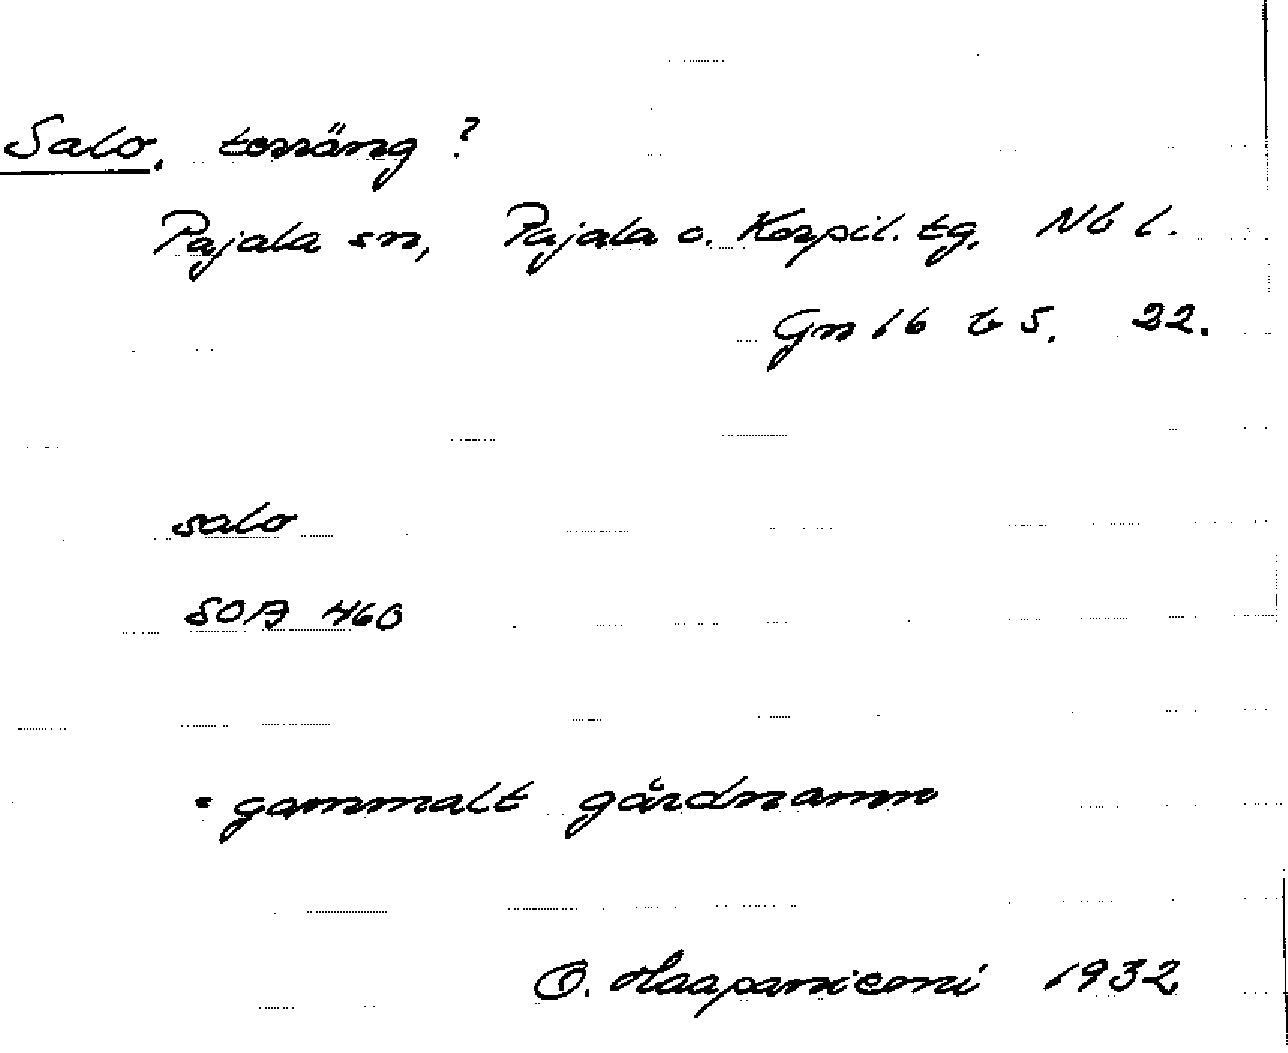 Salo, terräng ?
Pajala sn, Pajala o. Korpil. tg. Nb l.
Gn 16 b 5. 22.
salo
SOA 460
= gammalt gårdnamn
O. Haapaniemi 1932